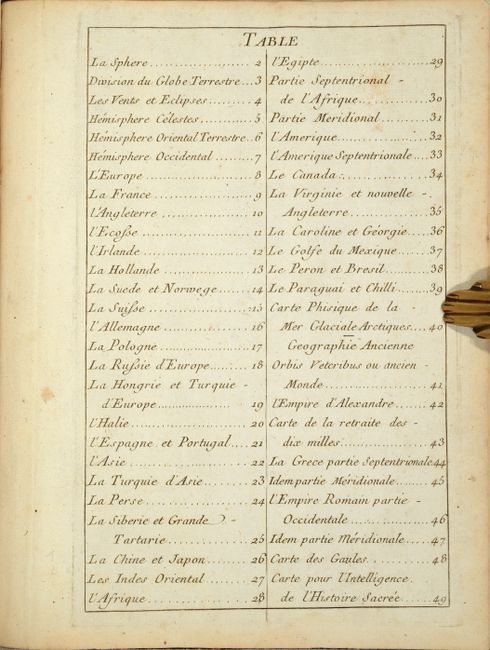 TABLE
La Sphere 2
Division du Globe Terrestre 3
Les Vents et Eclipses 4
Hémisphere Célestes 5
Hémisphere Oriental Terrestre 6
Hémisphere Occidental 7
L'Europe 8
La France 9
l'Angleterre 10
l'Ecosse 11
l'Irlande 12
La Hollande 13
La Suede et Norwege 14
La Suisse 15
l'Allemagne 16
La Pologne 17
La Russie d'Europe 18
La Hongrie et Turquie -
d'Europe 19
l'Italie 20
l'Espagne et Portugal 21
l'Asie 22
La Turquie d'Asie 23
La Perse 24
La Siberie et Grande -
Tartarie 25
La Chine et Japon 26
Les Indes Oriental 27
l'Afrique 28
l'Egipte 29
Partie Septentrional -
de l'Afrique 30
Partie Meridional 31
l'Amerique 32
l'Amerique Septentrionale 33
Le Canada 34
La Virginie et nouvelle -
Angleterre 35
La Caroline et Géorgie 36
Le Golfe du Mexique 37
Le Peron et Bresil 38
Le Paraguai et Chilli 39
Carte Phisique de la -
Mer Glaciale Arctiques 40
Geographie Ancienne
Orbis Veteribus ou ancien -
Monde 41
l'Empire d'Alexandre 42
Carte de la retraite des -
dix milles 43
La Grece partie Septentrionale 44
Idem partie Méridionale 45
l'Empire Romain partie -
Occidentale 46
Idem partie Méridionale 47
Carte des Gaules 48
Carte pour l'Intelligence
de l'Histoire Sacrée 49